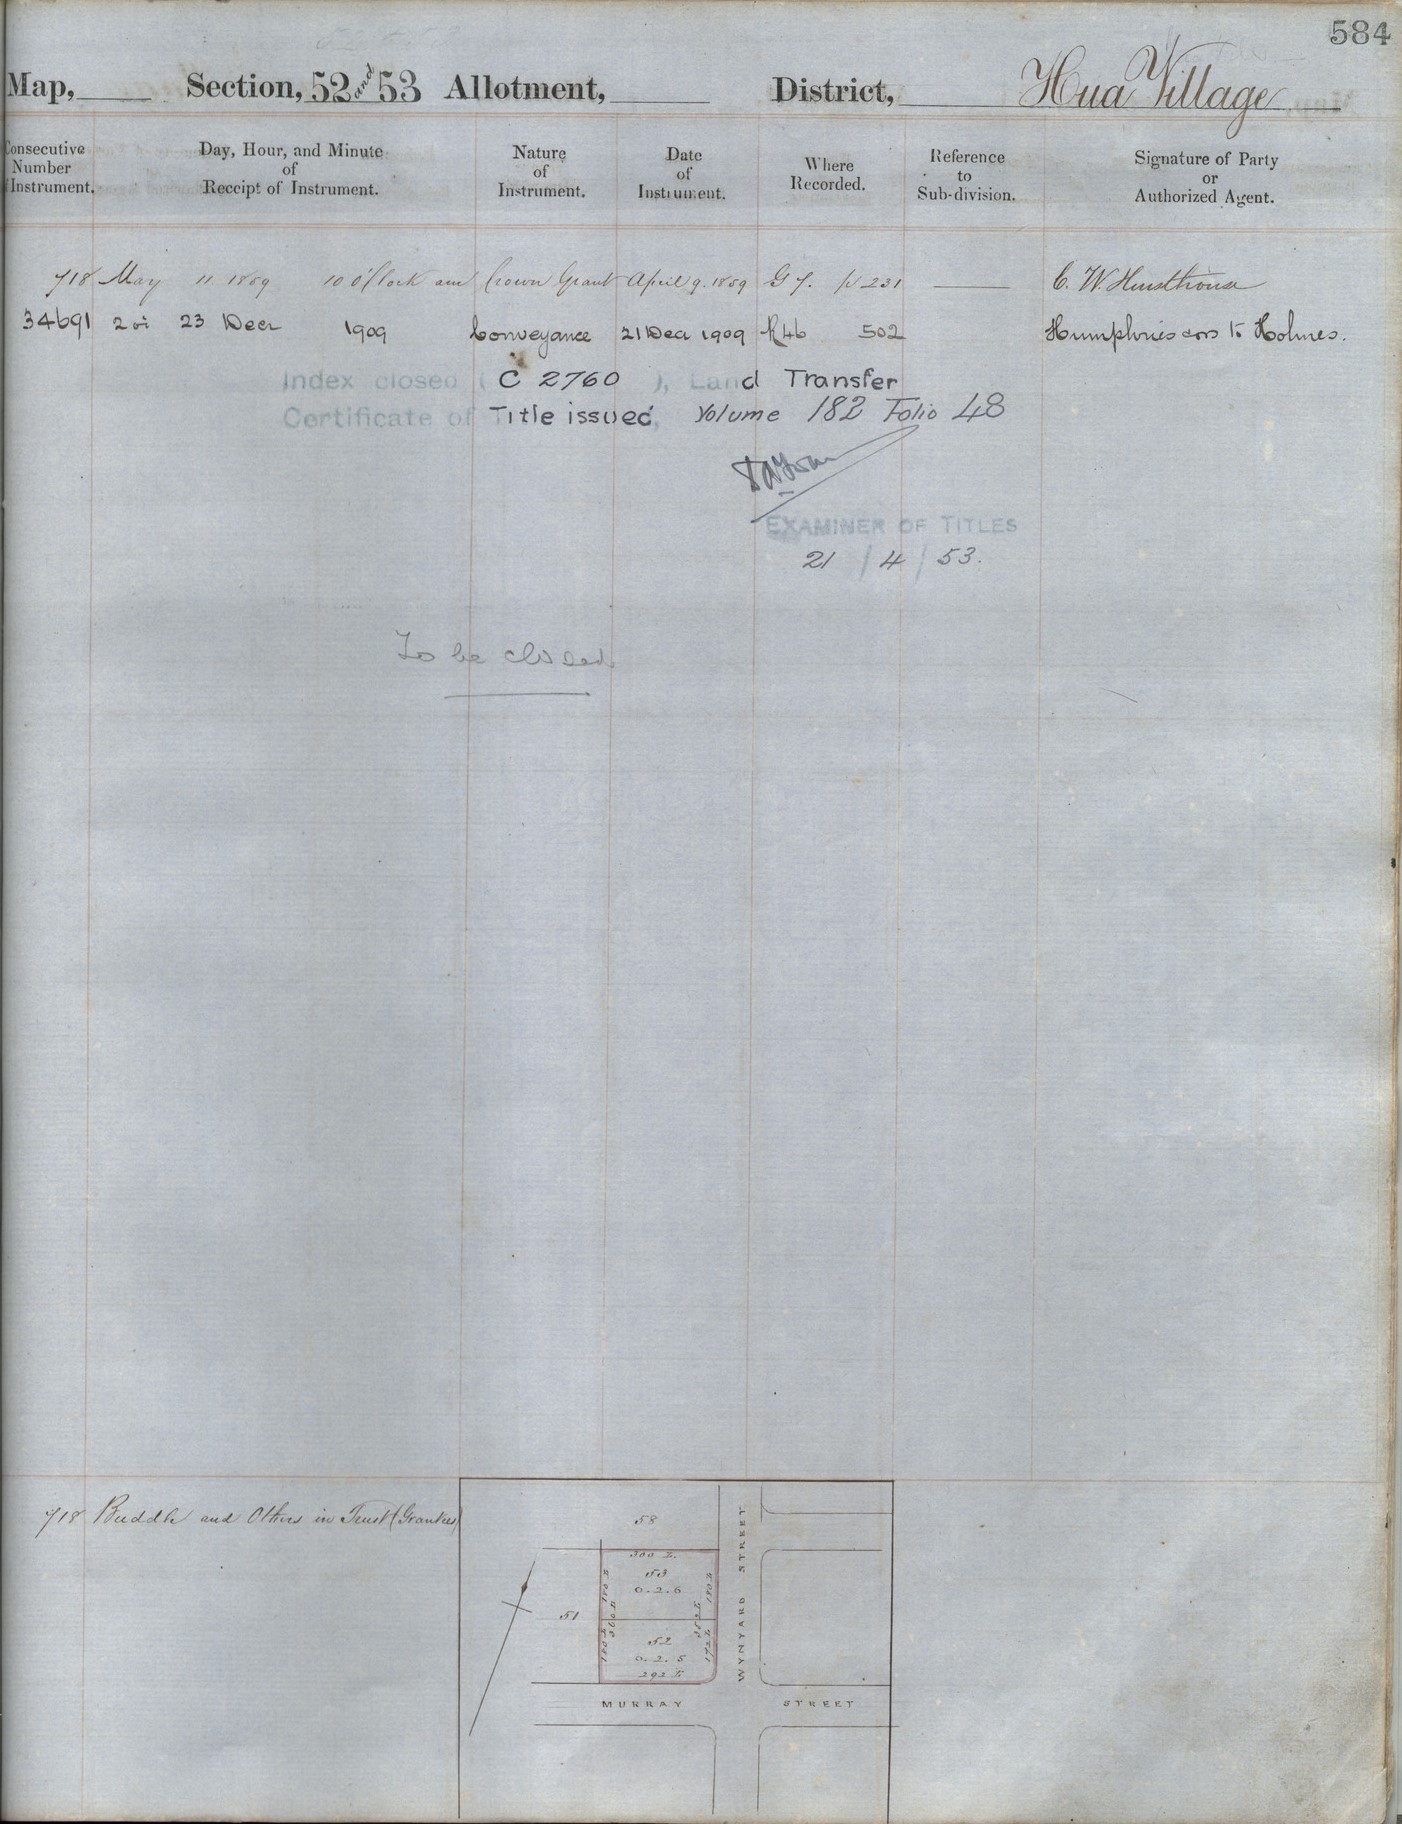 584
Map, Section, 52 and 53 Allotment, District, Hua Village
Consecutive Number Instrument.
Day, Hour, and Minute of Receipt of Instrument.
Nature of Instrument.
Date of Instrument.
Where Recorded.
Reference to Sub-division.
Signature of Party or Authorized Agent.
718 May 11 1859 10 O'Clock am Crown Grant April 9. 1859 G 7. p 231 C. W. Hursthouse
34691 23 Decr 1909 Conveyance 21 Dec 1909 R46 502 Humphries & ors to Holmes.
Index closed ( C 2760 ), Land Transfer
Certificate of Title issued, Volume 182 Folio 48
EXAMINER OF TITLES
21 / 4 / 53.
To be closed
718 Buddle and Others in Trust (Grantees)
58
300 L.
53
0.2.6
180 L
180 L
360 L
352 L
51
52
0.2.5
180 L
172 L
292 L.
WYNYARD STREET
MURRAY STREET